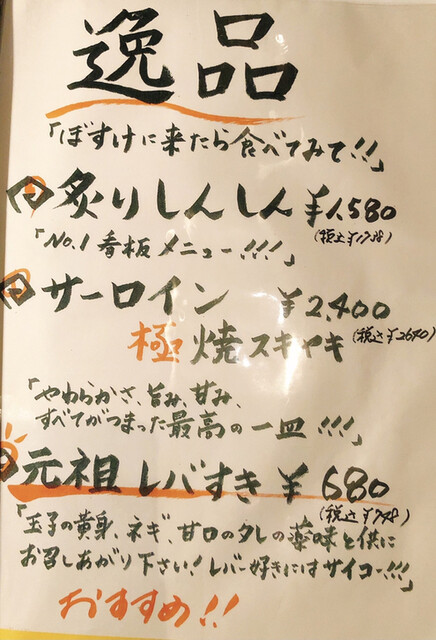 逸品
「ぼすけに来たら食べてみて!!」
炙りしんしん ¥1,580
(税込¥1738)
「No.1 看板メニュー!!!」
サーロイン ¥2,400
極 焼スキヤキ (税込¥2640)
「やわらかさ、旨み、甘み、
すべてがつまった最高の一皿!!!」
元祖 レバすき ¥680
(税込¥748)
「玉子の黄身、ネギ、甘口のタレの薬味と供に
お召しあがり下さい!レバー好きにはサイコー!!!」
おすすめ!!